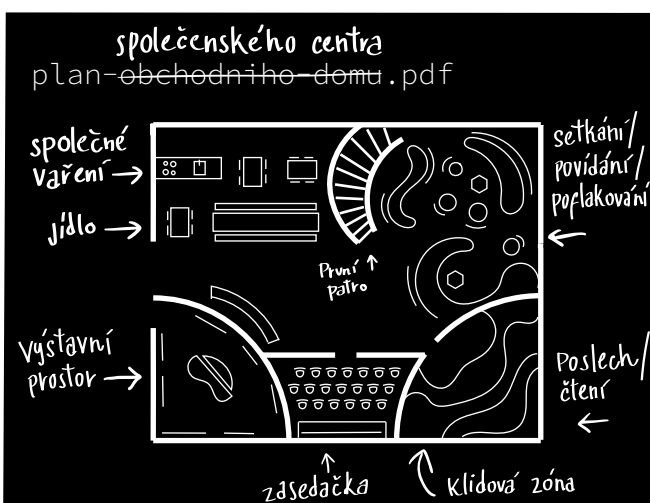 společenského centra
plan-obchodniho-domu.pdf
společné
vaření
jídlo
setkání/
povídání/
poflakování
První
patro
Výstavní
prostor
Poslech/
čtení
zasedačka
Klidová zóna